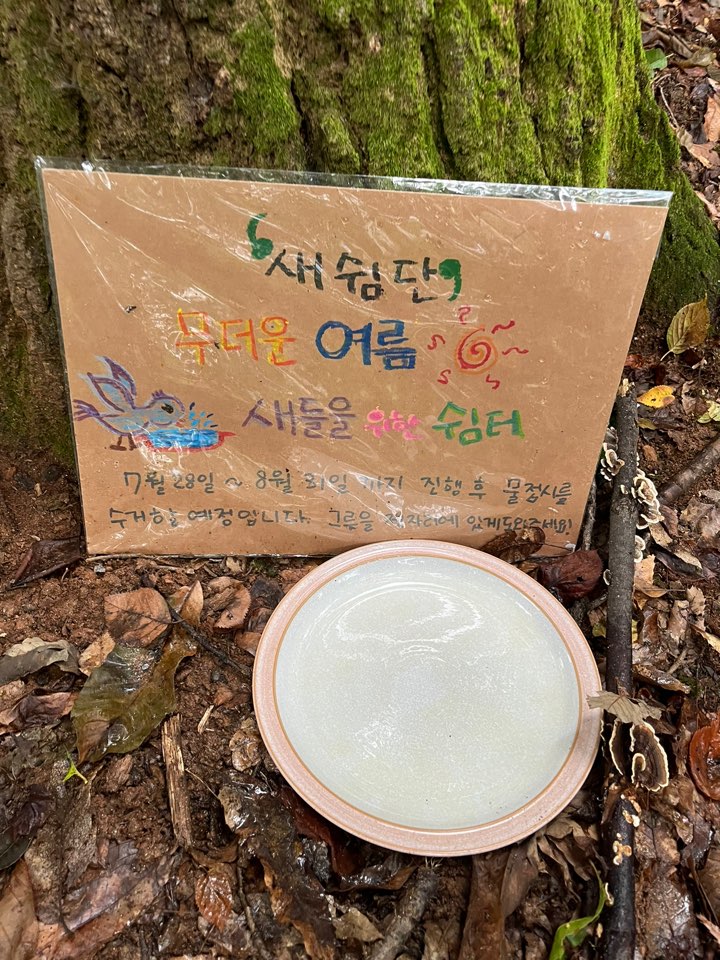 새쉼단
무더운 여름
새들을 위한 쉼터
7월 28일 ~ 8월 31일 까지 진행 후 물접시를
수거할 예정입니다. 그릇을 제자리에 있게 도와주세요!